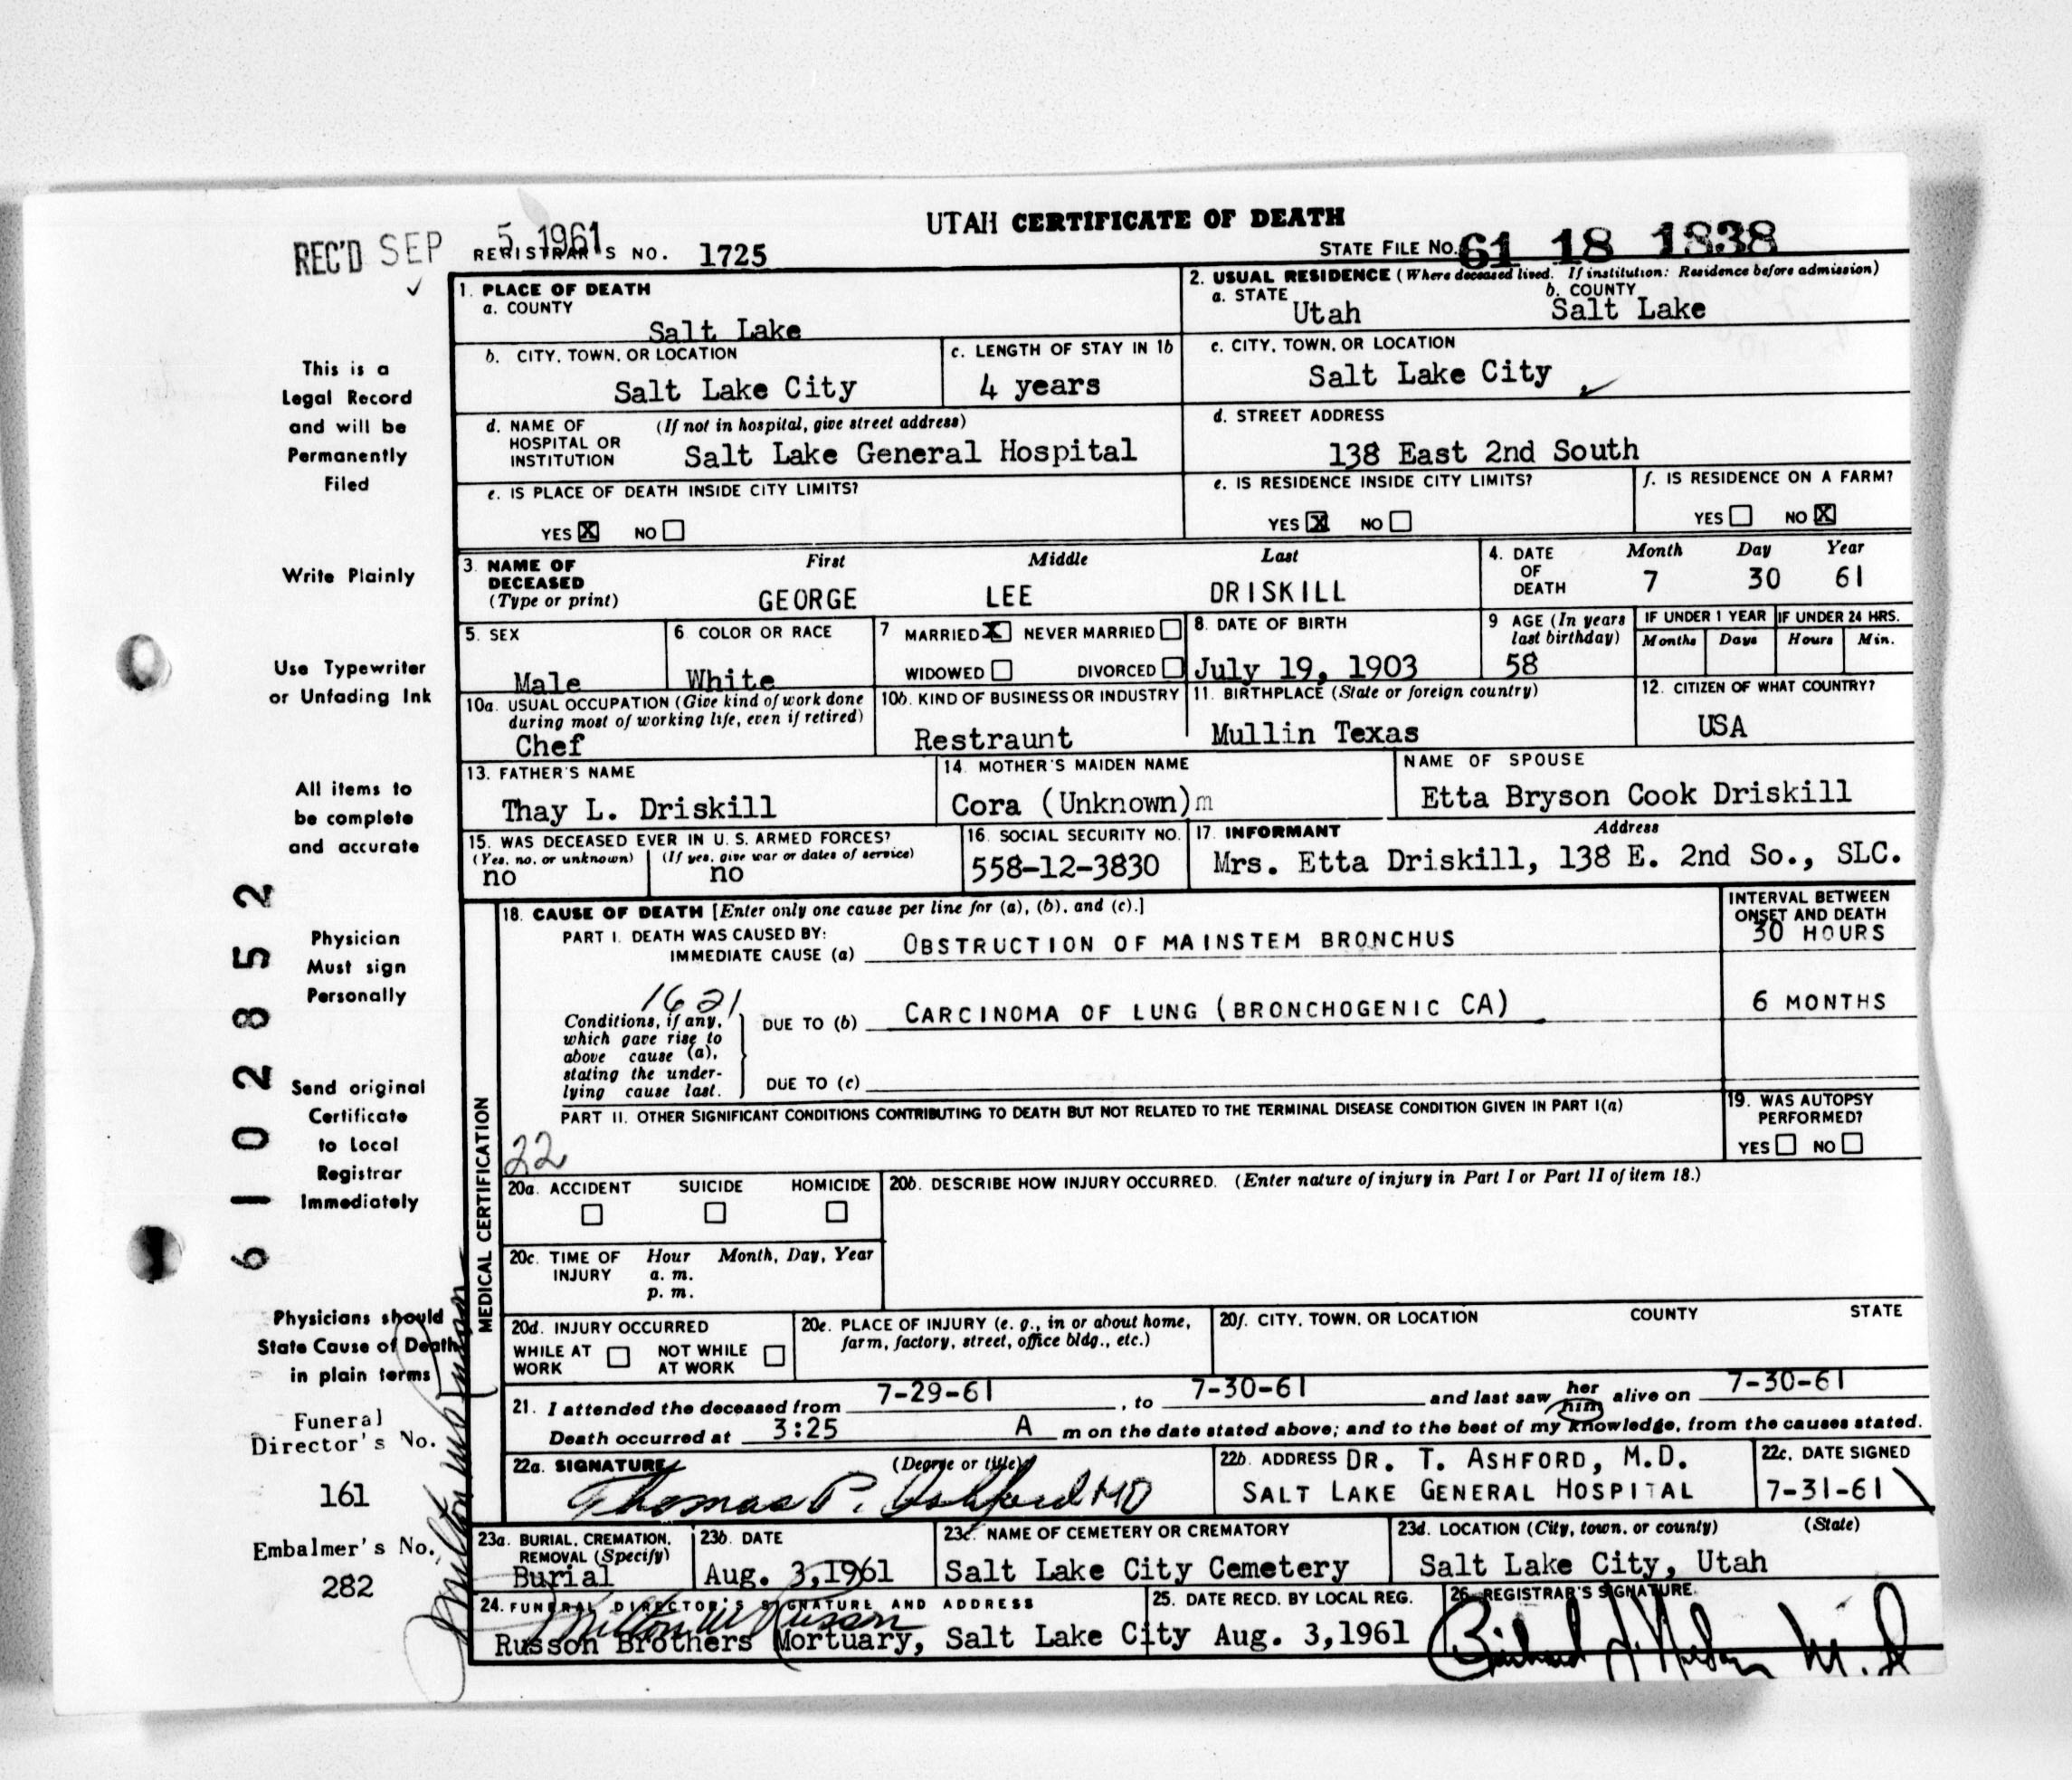 UTAH CERTIFICATE OF DEATH
REC'D SEP 5 1961
REGISTRAR'S NO. 1725
STATE FILE NO. 61 18 1838
1. PLACE OF DEATH
a. COUNTY
Salt Lake
2. USUAL RESIDENCE (Where deceased lived. If institution: Residence before admission)
a. STATE Utah
b. COUNTY Salt Lake
b. CITY, TOWN, OR LOCATION
Salt Lake City
c. LENGTH OF STAY IN 1b
4 years
c. CITY, TOWN, OR LOCATION
Salt Lake City
d. NAME OF HOSPITAL OR INSTITUTION (If not in hospital, give street address)
Salt Lake General Hospital
d. STREET ADDRESS
138 East 2nd South
e. IS PLACE OF DEATH INSIDE CITY LIMITS?
YES X NO
e. IS RESIDENCE INSIDE CITY LIMITS?
YES X NO
f. IS RESIDENCE ON A FARM?
YES NO X
3. NAME OF DECEASED (Type or print)
First Middle Last
GEORGE LEE DRISKILL
4. DATE OF DEATH
Month Day Year
7 30 61
5. SEX
Male
6. COLOR OR RACE
White
7 MARRIED X NEVER MARRIED
WIDOWED DIVORCED
8. DATE OF BIRTH
July 19, 1903
9 AGE (In years last birthday)
58
IF UNDER 1 YEAR
Months Days
IF UNDER 24 HRS.
Hours Min.
10a. USUAL OCCUPATION (Give kind of work done during most of working life, even if retired)
Chef
10b. KIND OF BUSINESS OR INDUSTRY
Restraunt
11. BIRTHPLACE (State or foreign country)
Mullin Texas
12. CITIZEN OF WHAT COUNTRY?
USA
13. FATHER'S NAME
Thay L. Driskill
14. MOTHER'S MAIDEN NAME
Cora (Unknown)m
NAME OF SPOUSE
Etta Bryson Cook Driskill
15. WAS DECEASED EVER IN U. S. ARMED FORCES?
(Yes, no, or unknown) (If yes, give war or dates of service)
no no
16. SOCIAL SECURITY NO.
558-12-3830
17. INFORMANT Address
Mrs. Etta Driskill, 138 E. 2nd So., SLC.
MEDICAL CERTIFICATION
18. CAUSE OF DEATH [Enter only one cause per line for (a), (b), and (c).]
INTERVAL BETWEEN ONSET AND DEATH
PART I. DEATH WAS CAUSED BY:
IMMEDIATE CAUSE (a) OBSTRUCTION OF MAINSTEM BRONCHUS
30 HOURS
1621
Conditions, if any, which gave rise to above cause (a), stating the underlying cause last.
DUE TO (b) CARCINOMA OF LUNG (BRONCHOGENIC CA)
6 MONTHS
DUE TO (c)
PART II. OTHER SIGNIFICANT CONDITIONS CONTRIBUTING TO DEATH BUT NOT RELATED TO THE TERMINAL DISEASE CONDITION GIVEN IN PART I(a)
22
19. WAS AUTOPSY PERFORMED?
YES NO
20a. ACCIDENT SUICIDE HOMICIDE
20b. DESCRIBE HOW INJURY OCCURRED. (Enter nature of injury in Part I or Part II of item 18.)
20c. TIME OF INJURY Hour Month, Day, Year
a. m.
p. m.
20d. INJURY OCCURRED
WHILE AT WORK NOT WHILE AT WORK
20e. PLACE OF INJURY (e. g., in or about home, farm, factory, street, office bldg., etc.)
20f. CITY, TOWN, OR LOCATION COUNTY STATE
21. I attended the deceased from 7-29-61, to 7-30-61 and last saw her him alive on 7-30-61
Death occurred at 3:25 A m on the date stated above; and to the best of my knowledge, from the causes stated.
22a. SIGNATURE (Degree or title)
Thomas P. Ashford MD
22b. ADDRESS DR. T. ASHFORD, M.D.
SALT LAKE GENERAL HOSPITAL
22c. DATE SIGNED
7-31-61
23a. BURIAL, CREMATION, REMOVAL (Specify)
Burial
23b. DATE
Aug. 3,1961
23c. NAME OF CEMETERY OR CREMATORY
Salt Lake City Cemetery
23d. LOCATION (City, town, or county) (State)
Salt Lake City, Utah
24. FUNERAL DIRECTOR'S SIGNATURE AND ADDRESS
Milton W Russon
Russon Brothers Mortuary, Salt Lake City
25. DATE RECD. BY LOCAL REG.
Aug. 3,1961
26. REGISTRAR'S SIGNATURE
M.D
This is a
Legal Record
and will be
Permanently
Filed
Write Plainly
Use Typewriter
or Unfading Ink
All items to
be complete
and accurate
Physician
Must sign
Personally
Send original
Certificate
to Local
Registrar
Immediately
Physicians should
State Cause of Death
in plain terms
Funeral
Director's No.
161
Embalmer's No.
282
6102852